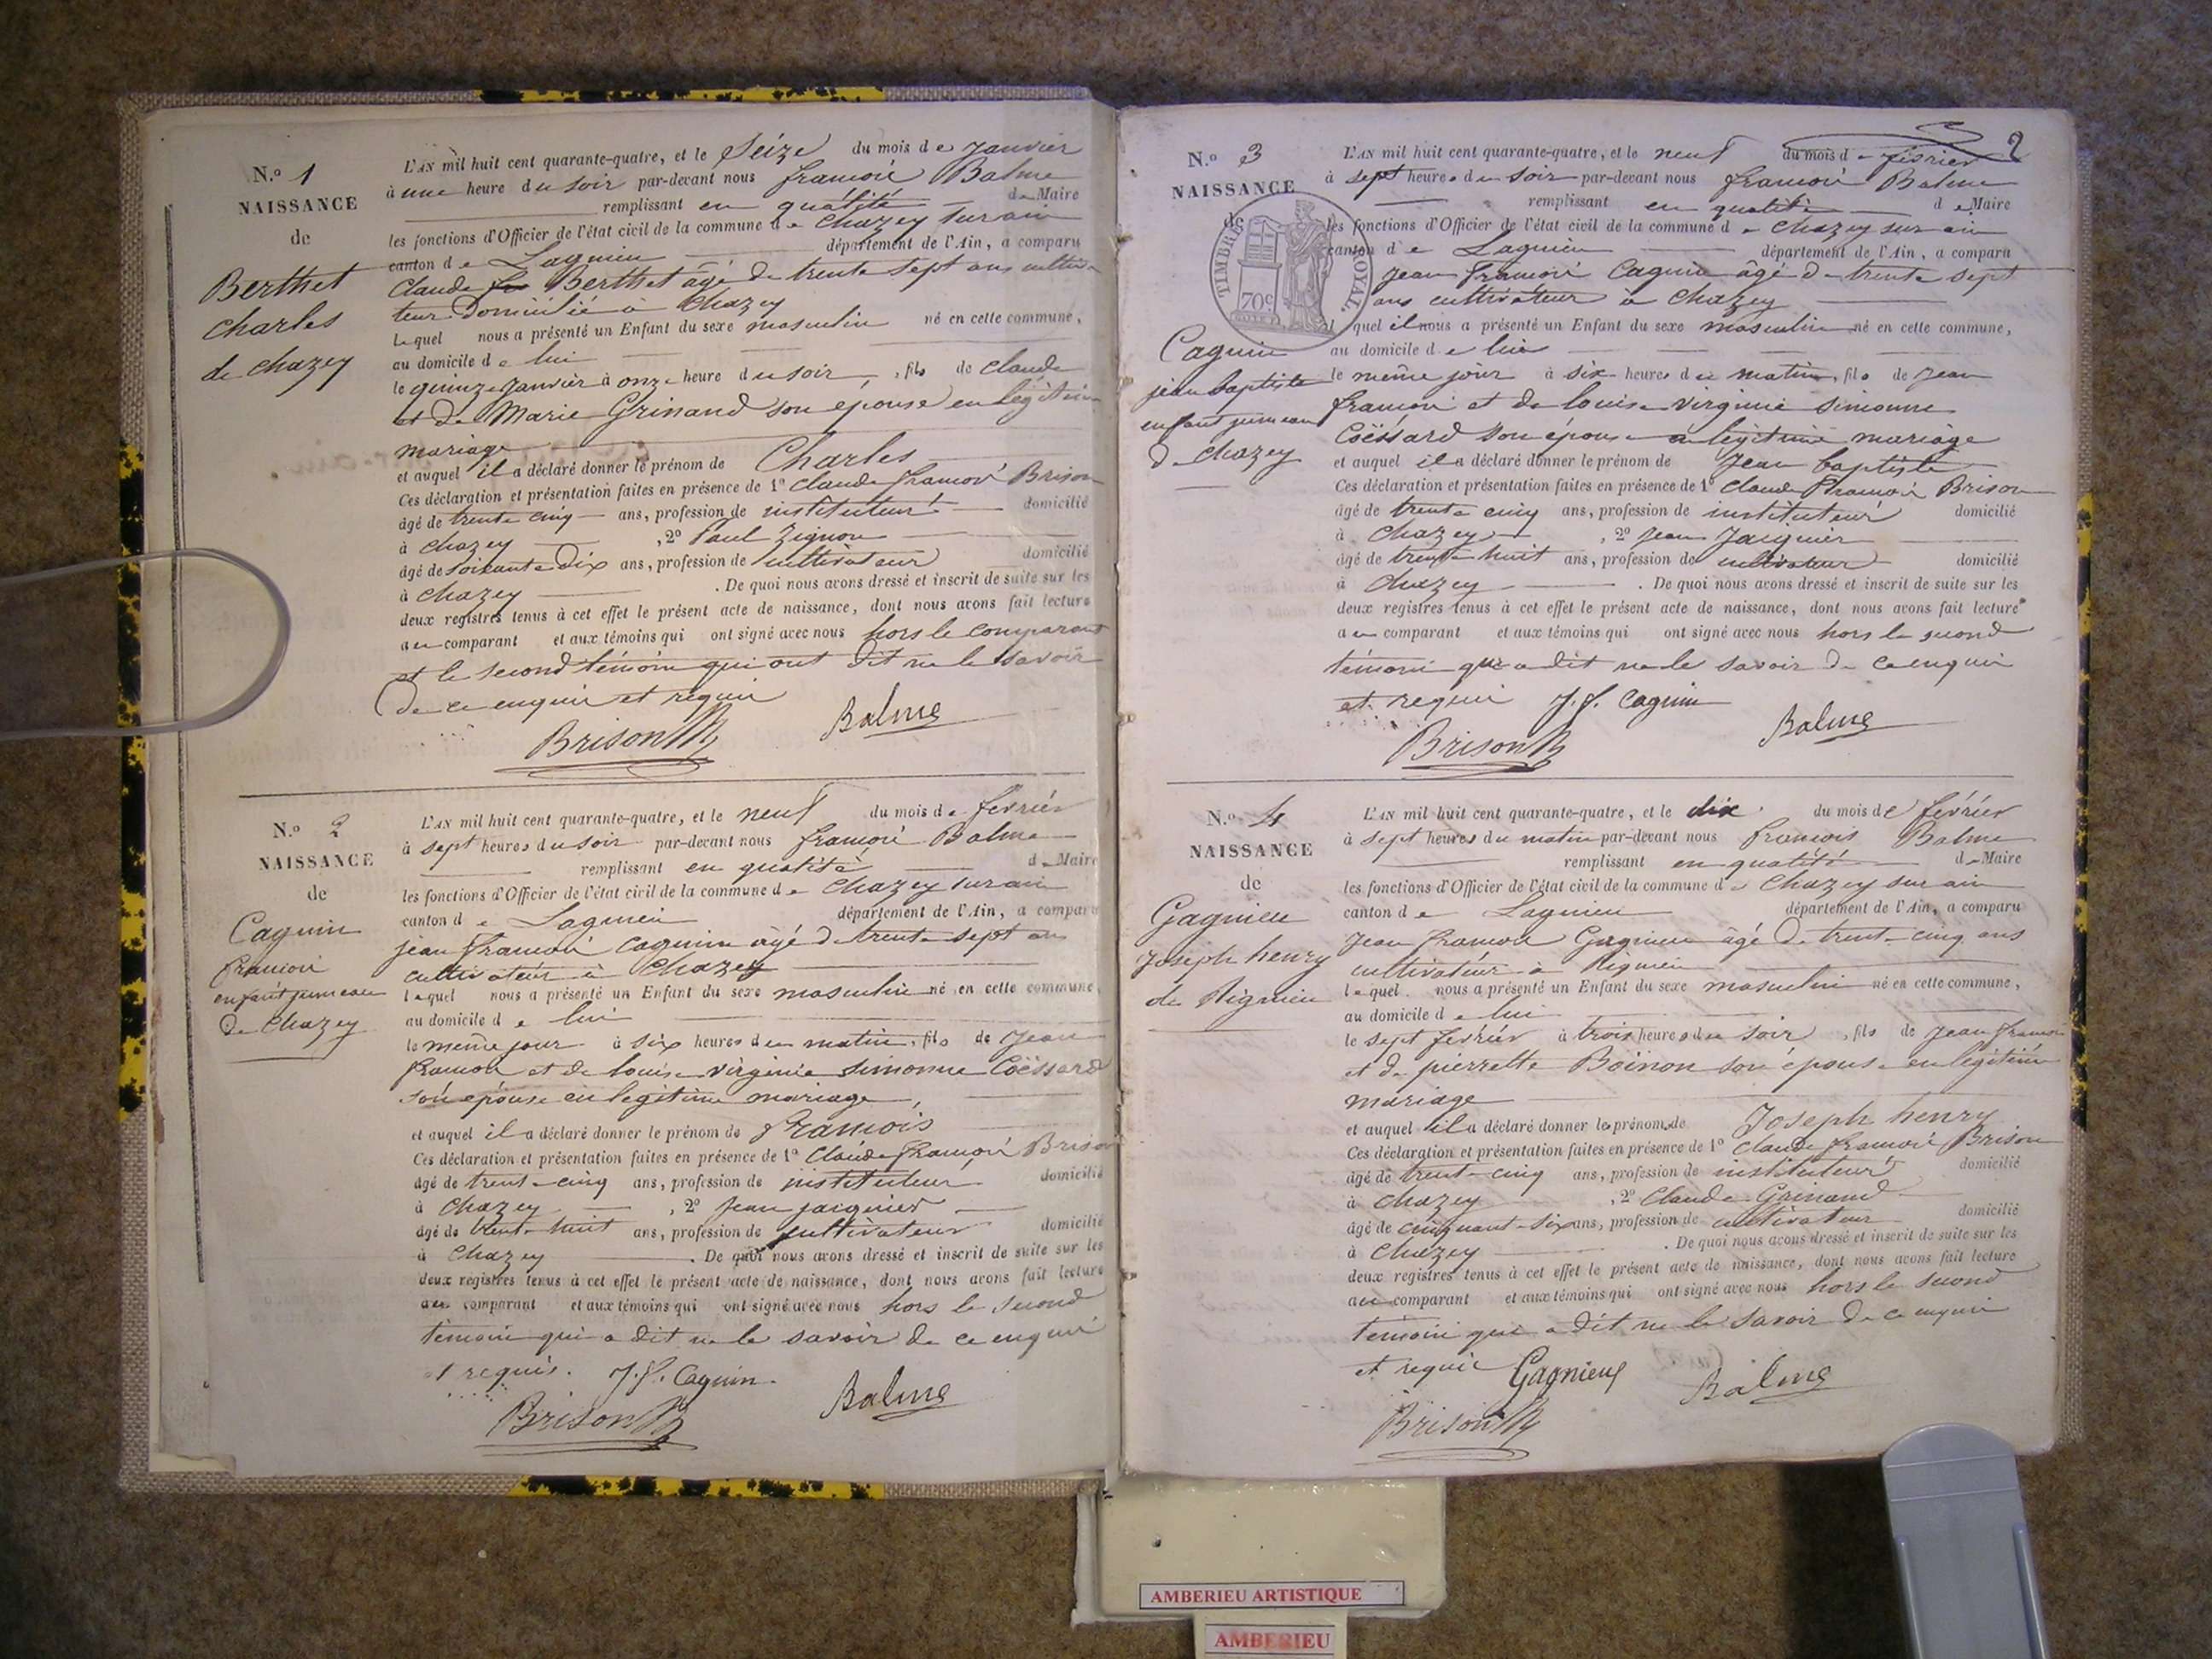 N.o 1
NAISSANCE
de
Berthet
Charles
de Chazey
L'AN mil huit cent quarante-quatre, et le Seize du mois de Janvier
à une heure du soir par-devant nous françois Balme
remplissant en qualité de Maire
les fonctions d'Officier de l'état civil de la commune de Chazey sur ain
canton de Lagnieu département de l'Ain, a comparu
Claude Berthet âgé de trente sept ans cultiva-
teur domicilié à Chazey
lequel nous a présenté un Enfant du sexe masculin né en cette commune,
au domicile de lui
le quinze Janvier à onze heure du soir, fils de Claude
et de Marie Grinand son epouse en légitime
mariage
et auquel il a déclaré donner le prénom de Charles
Ces déclaration et présentation faites en présence de 1º Claude françois Brison
âgé de trente cinq ans, profession de instituteur domicilié
à Chazey , 2º Paul Zignon
âgé de soixante dix ans, profession de cultivateur domicilié
à Chazey . De quoi nous avons dressé et inscrit de suite sur les
deux registres tenus à cet effet le présent acte de naissance, dont nous avons fait lecture
au comparant et aux témoins qui ont signé avec nous hors le comparant
et le second témoin qui ont dit ne le savoir
de ce enquis et requis
Brison Balme
N.o 2
NAISSANCE
de
Caguin
françois
enfant jumeau
de Chazey
L'AN mil huit cent quarante-quatre, et le neuf du mois de février
à sept heures du soir par-devant nous françois Balme
remplissant en qualité de Maire
les fonctions d'Officier de l'état civil de la commune de Chazey sur ain
canton de Lagnieu département de l'Ain, a comparu
Jean françois Caguin âgé de trente sept ans
cultivateur à Chazey
lequel nous a présenté un Enfant du sexe masculin né en cette commune,
au domicile de lui
le même jour à six heures du matin, fils de Jean
françois et de louise virginie simonne Coëssard
son épouse en legitime mariage,
et auquel il a déclaré donner le prénom de françois
Ces déclaration et présentation faites en présence de 1º Claude françois Brison
âgé de trente cinq ans, profession de instituteur domicilié
à Chazey , 2º Jean jacquier
âgé de trente huit ans, profession de cultivateur domicilié
à Chazey . De quoi nous avons dressé et inscrit de suite sur les
deux registres tenus à cet effet le présent acte de naissance, dont nous avons fait lecture
au comparant et aux témoins qui ont signé avec nous hors le second
témoin qui a dit ne le savoir de ce enquis
et requis. J. f. Caguin.
Brison Balme
2
N.o 3
NAISSANCE
de
TIMBRE ROYAL.
70c
Caguin
jean baptiste
enfant jumeau
de Chazey
L'AN mil huit cent quarante-quatre, et le neuf du mois de février
à sept heures du soir par-devant nous françois Balme
remplissant en qualité de Maire
les fonctions d'Officier de l'état civil de la commune de Chazey sur ain
canton de Lagnieu département de l'Ain, a comparu
Jean françois Caguin âgé de trente sept
ans cultivateur à Chazey
lequel il nous a présenté un Enfant du sexe masculin né en cette commune,
au domicile de lui
le même jour à six heures du matin, fils de Jean
françois et de louise virginie simonne
Coëssard son épouse en legitime mariage
et auquel il a déclaré donner le prénom de Jean baptiste
Ces déclaration et présentation faites en présence de 1º Claude françois Brison
âgé de trente cinq ans, profession de instituteur domicilié
à Chazey , 2º Jean Jacquier
âgé de trente huit ans, profession de cultivateur domicilié
à Chazey . De quoi nous avons dressé et inscrit de suite sur les
deux registres tenus à cet effet le présent acte de naissance, dont nous avons fait lecture
au comparant et aux témoins qui ont signé avec nous hors le second
témoin qui a dit ne le savoir de ce enquis
et requis J. f. Caguin
Brison Balme
N.o 4
NAISSANCE
de
Gagnieu
Joseph henry
de Rignieu
L'AN mil huit cent quarante-quatre, et le dix du mois de février
à sept heures du matin par-devant nous francois Balme
remplissant en qualité de Maire
les fonctions d'Officier de l'état civil de la commune de Chazey sur ain
canton de Lagnieu département de l'Ain, a comparu
Jean françois Gagnieu âgé de trente cinq ans
cultivateur à Rignieu
lequel nous a présenté un Enfant du sexe masculin né en cette commune,
au domicile de lui
le sept février à trois heures du soir, fils de Jean françois
et de pierrette Boinon son épouse en légitime
mariage
et auquel il a déclaré donner les prénom de Joseph henry
Ces déclaration et présentation faites en présence de 1º Claude françois Brison
âgé de trente cinq ans, profession de instituteur domicilié
à Chazey , 2º Claude Grinand
âgé de cinquante six ans, profession de cultivateur domicilié
à Chazey . De quoi nous avons dressé et inscrit de suite sur les
deux registres tenus à cet effet le présent acte de naissance, dont nous avons fait lecture
au comparant et aux témoins qui ont signé avec nous hors le second
témoin qui a dit ne le savoir de ce enquis
et requis Gagnieu Balme
Brison
AMBERIEU ARTISTIQUE
AMBERIEU